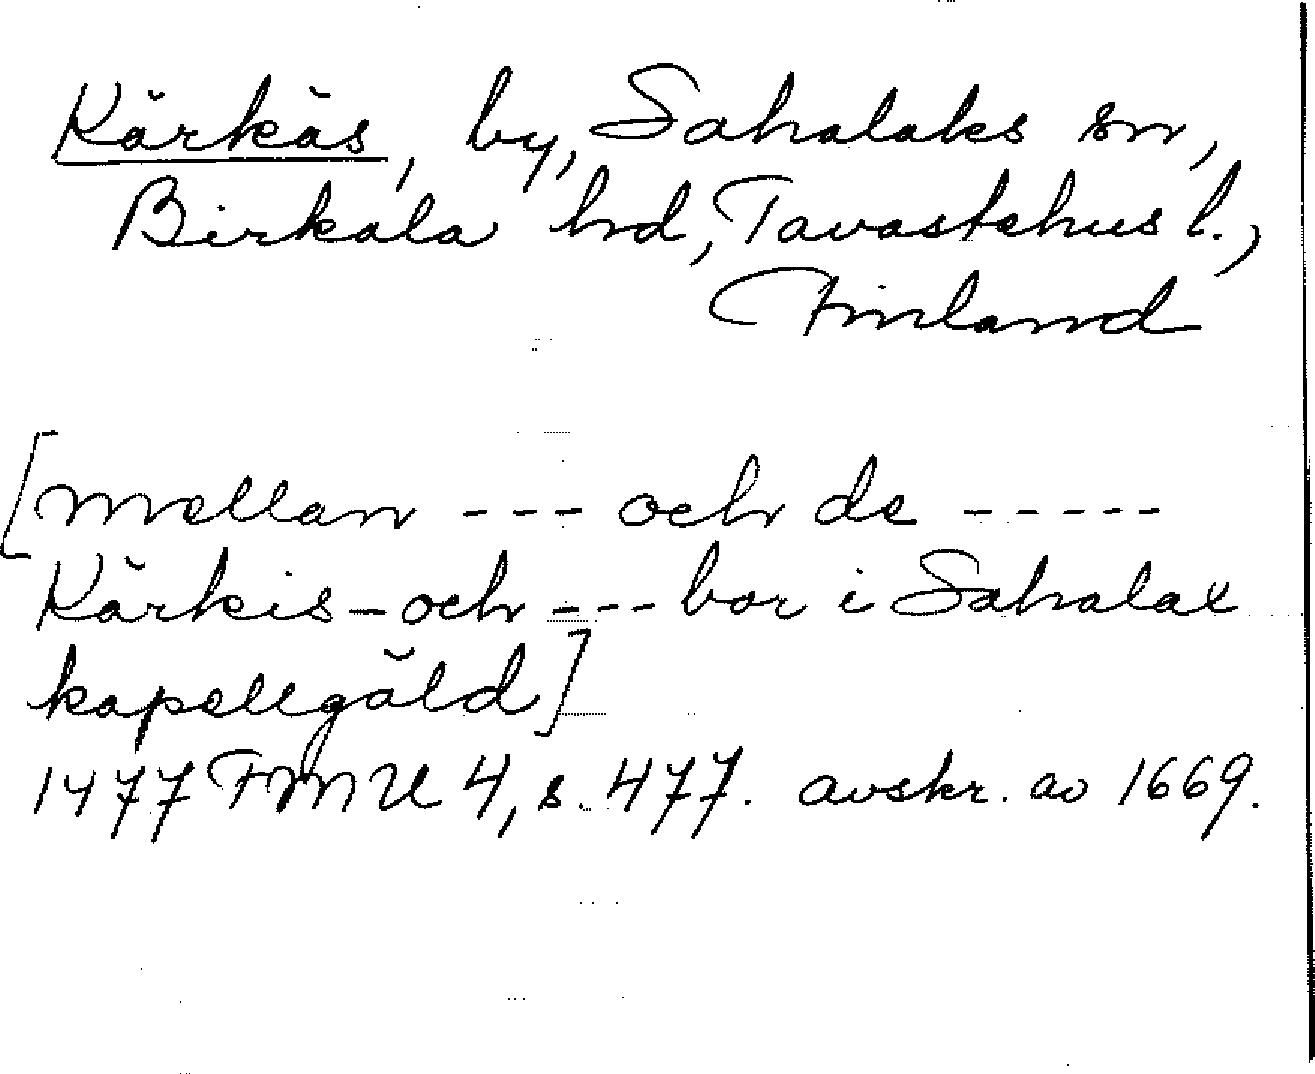 Kärkäs, by, Sahalaks sn,
Birkala hd, Tavastehus l.,
Finland
[mellan --- och de -----
Kärkis- och --- bor i Sahalax
kapellgäld]
1477 FMU 4, s. 477. avskr. av 1669.